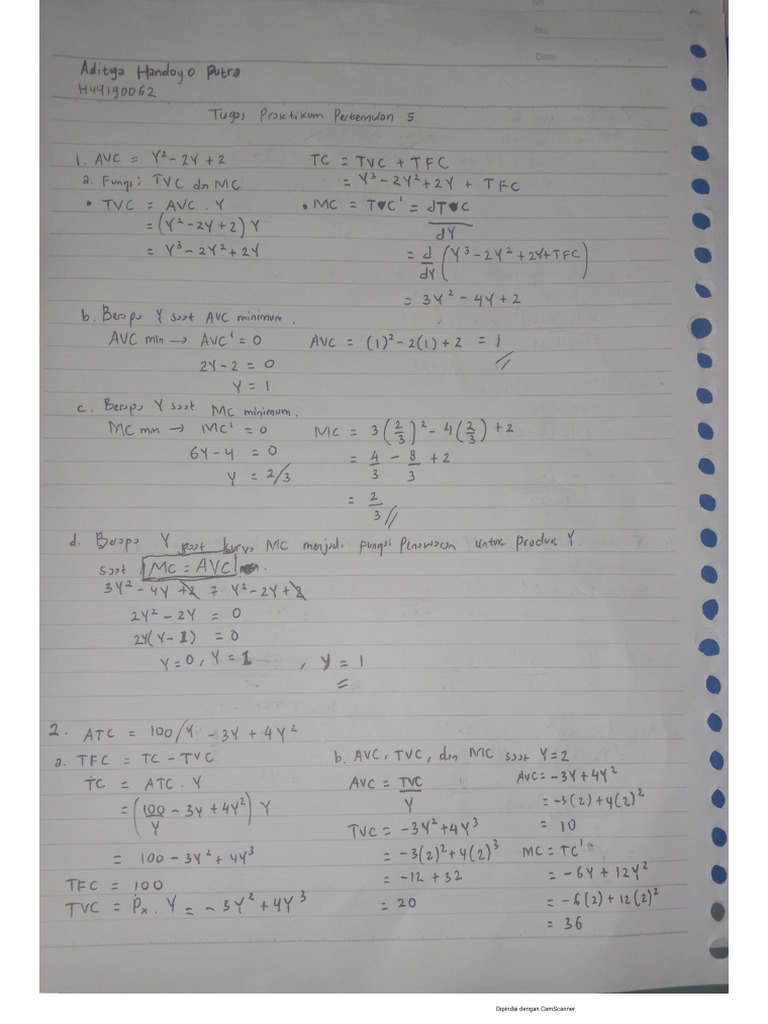 No.
No:
Date
Aditya Handoyo Putra
H44190062
Tugas Praktikum Pertemuan 5
1. AVC = Y² - 2Y + 2
a. Fungsi TVC dan MC
• TVC = AVC . Y
= (Y² - 2Y + 2) Y
= Y³ - 2Y² + 2Y
TC = TVC + TFC
= Y³ - 2Y² + 2Y + TFC
• MC = TVC' = dTVC/dY
= d/dY (Y³ - 2Y² + 2Y + TFC)
= 3Y² - 4Y + 2
b. Berapa Y saat AVC minimum.
AVC min → AVC' = 0
2Y - 2 = 0
Y = 1
AVC = (1)² - 2(1) + 2 = 1
c. Berapa Y saat MC minimum.
MC min → MC' = 0
6Y - 4 = 0
Y = 2/3
MC = 3(2/3)² - 4(2/3) + 2
= 4/3 - 8/3 + 2
= 2/3
d. Berapa Y saat kurva MC menjadi fungsi penawaran untuk produk Y.
saat MC = AVC
3Y² - 4Y + 2 = Y² - 2Y + 2
2Y² - 2Y = 0
2Y(Y - 1) = 0
Y = 0, Y = 1 , Y = 1
2. ATC = 100/Y - 3Y + 4Y²
a. TFC = TC - TVC
TC = ATC . Y
= (100/Y - 3Y + 4Y²) Y
= 100 - 3Y² + 4Y³
TFC = 100
TVC = Px . Y = - 3Y² + 4Y³
b. AVC, TVC, dan MC saat Y = 2
AVC = TVC/Y
TVC = -3Y² + 4Y³
= -3(2)² + 4(2)³
= -12 + 32
= 20
AVC = -3Y + 4Y²
= -3(2) + 4(2)²
= 10
MC = TC'
= -6Y + 12Y²
= -6(2) + 12(2)²
= 36
Dipindai dengan CamScanner